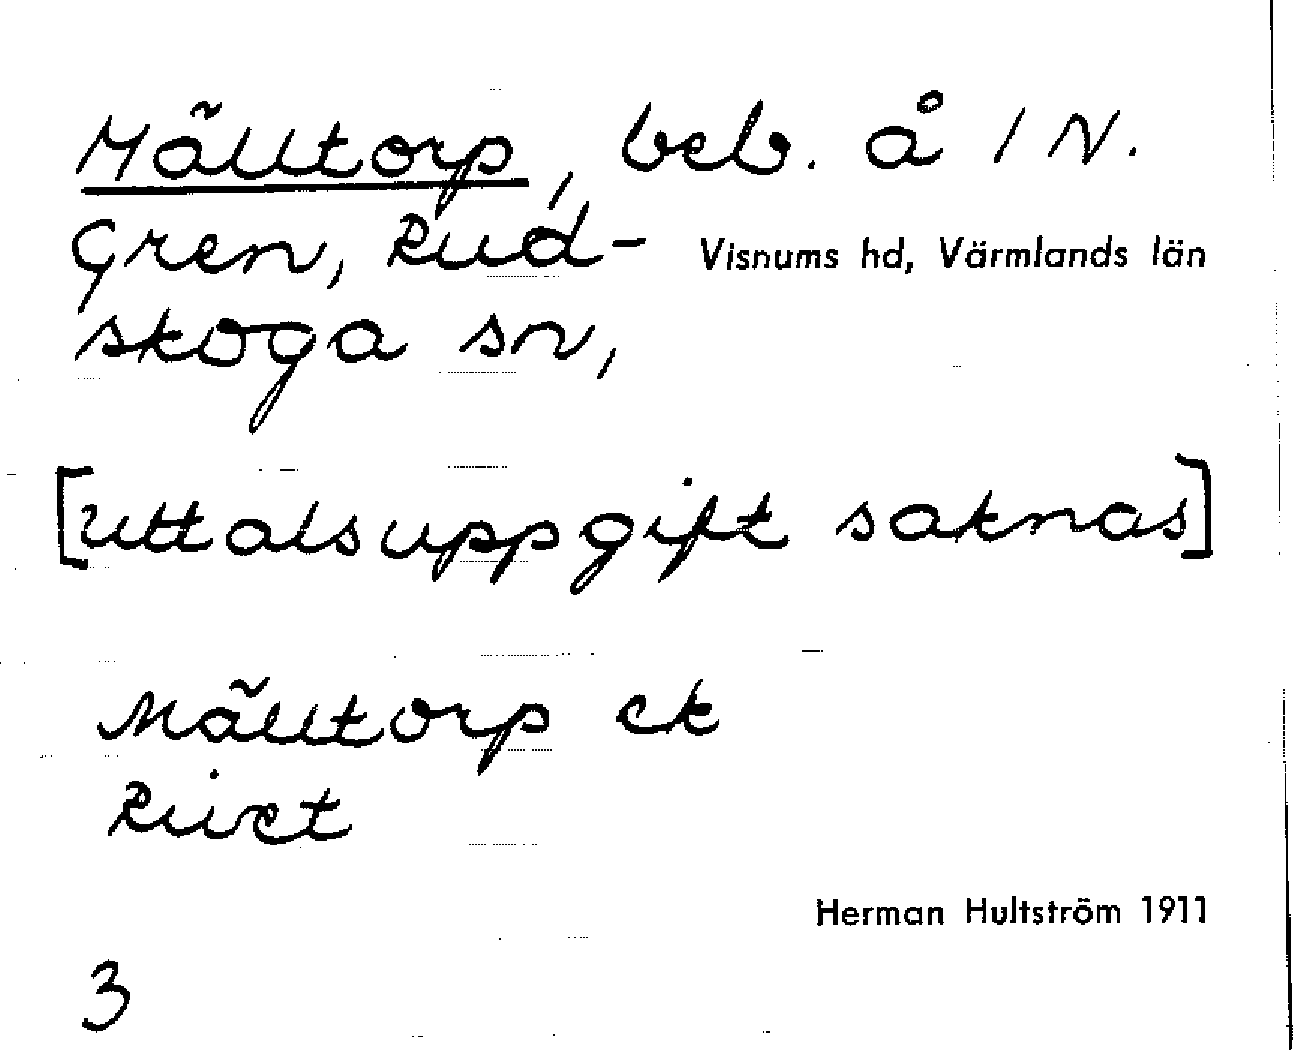 Mälltorp, beb. å 1 N.
Gren, Rud-
Visnums hd, Värmlands län
skoga sn,
[Uttalsuppgift saknas]
Mälltorp ek
Rivet
Herman Hultström 1911
3